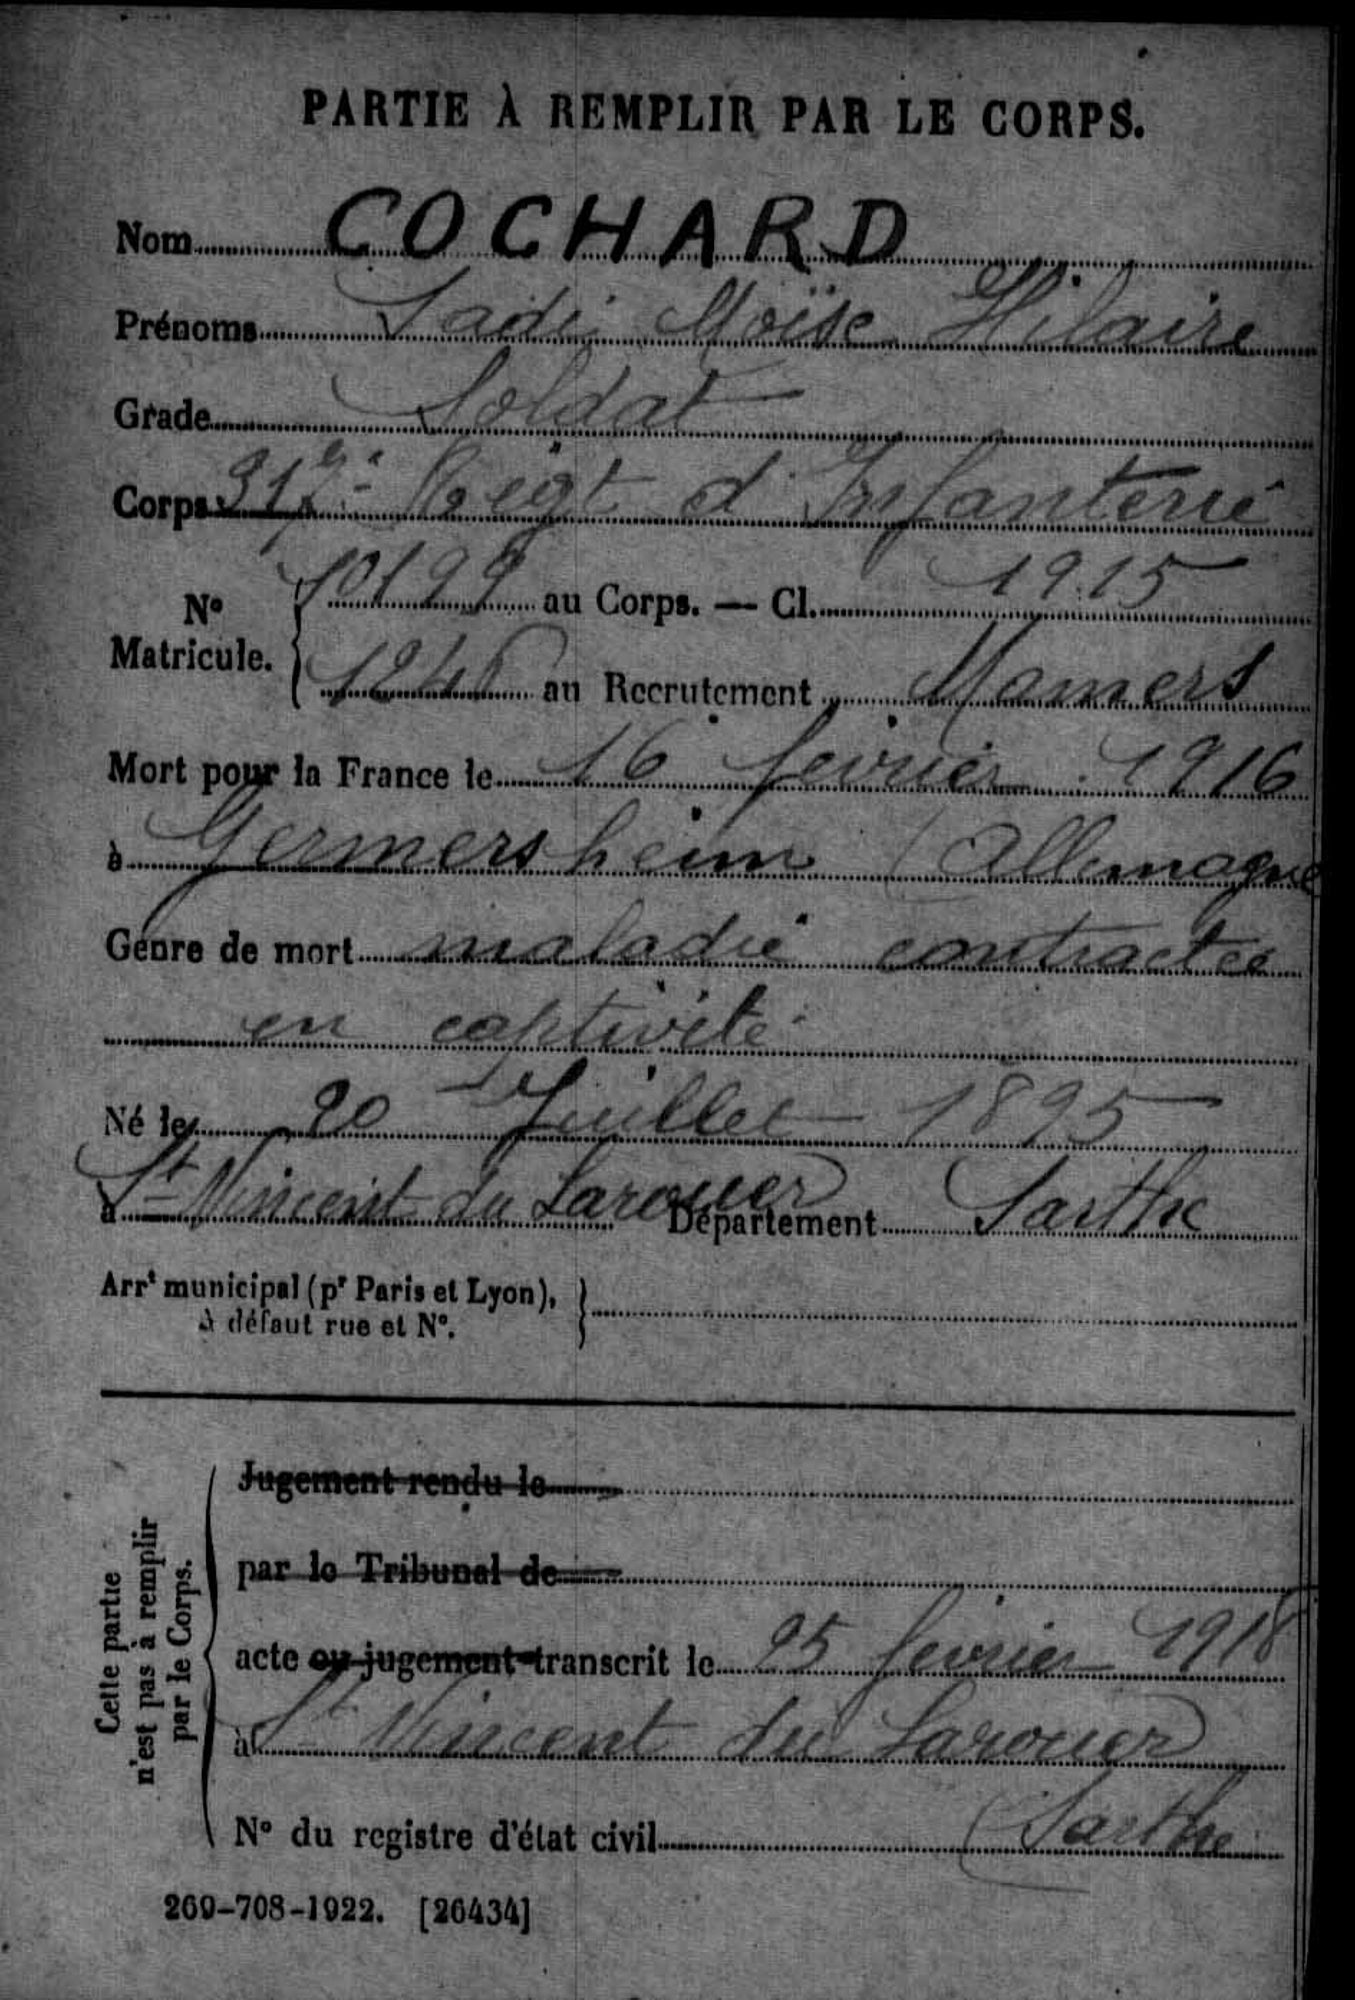 PARTIE À REMPLIR PAR LE CORPS.
Nom COCHARD
Prénoms Sadi Moïse Hilaire
Grade Soldat
Corps 317e Régt d'Infanterie
No Matricule. 10199 au Corps. — Cl. 1915
1246 au Recrutement Mamers
Mort pour la France le 16 février 1916
à Germersheim (Allemagne
Genre de mort maladie contractée
en captivité
Né le 20 Juillet 1895
à St Vincent du Lorouer Département Sarthe
Arrt municipal (pr Paris et Lyon),
à défaut rue et No.
Cette partie
n'est pas à remplir
par le Corps.
Jugement rendu le
par le Tribunal de
acte ou jugement transcrit le 25 février 1918
à St Vincent du Lorouer
No du registre d'état civil (Sarthe
269-708-1922. [26434]